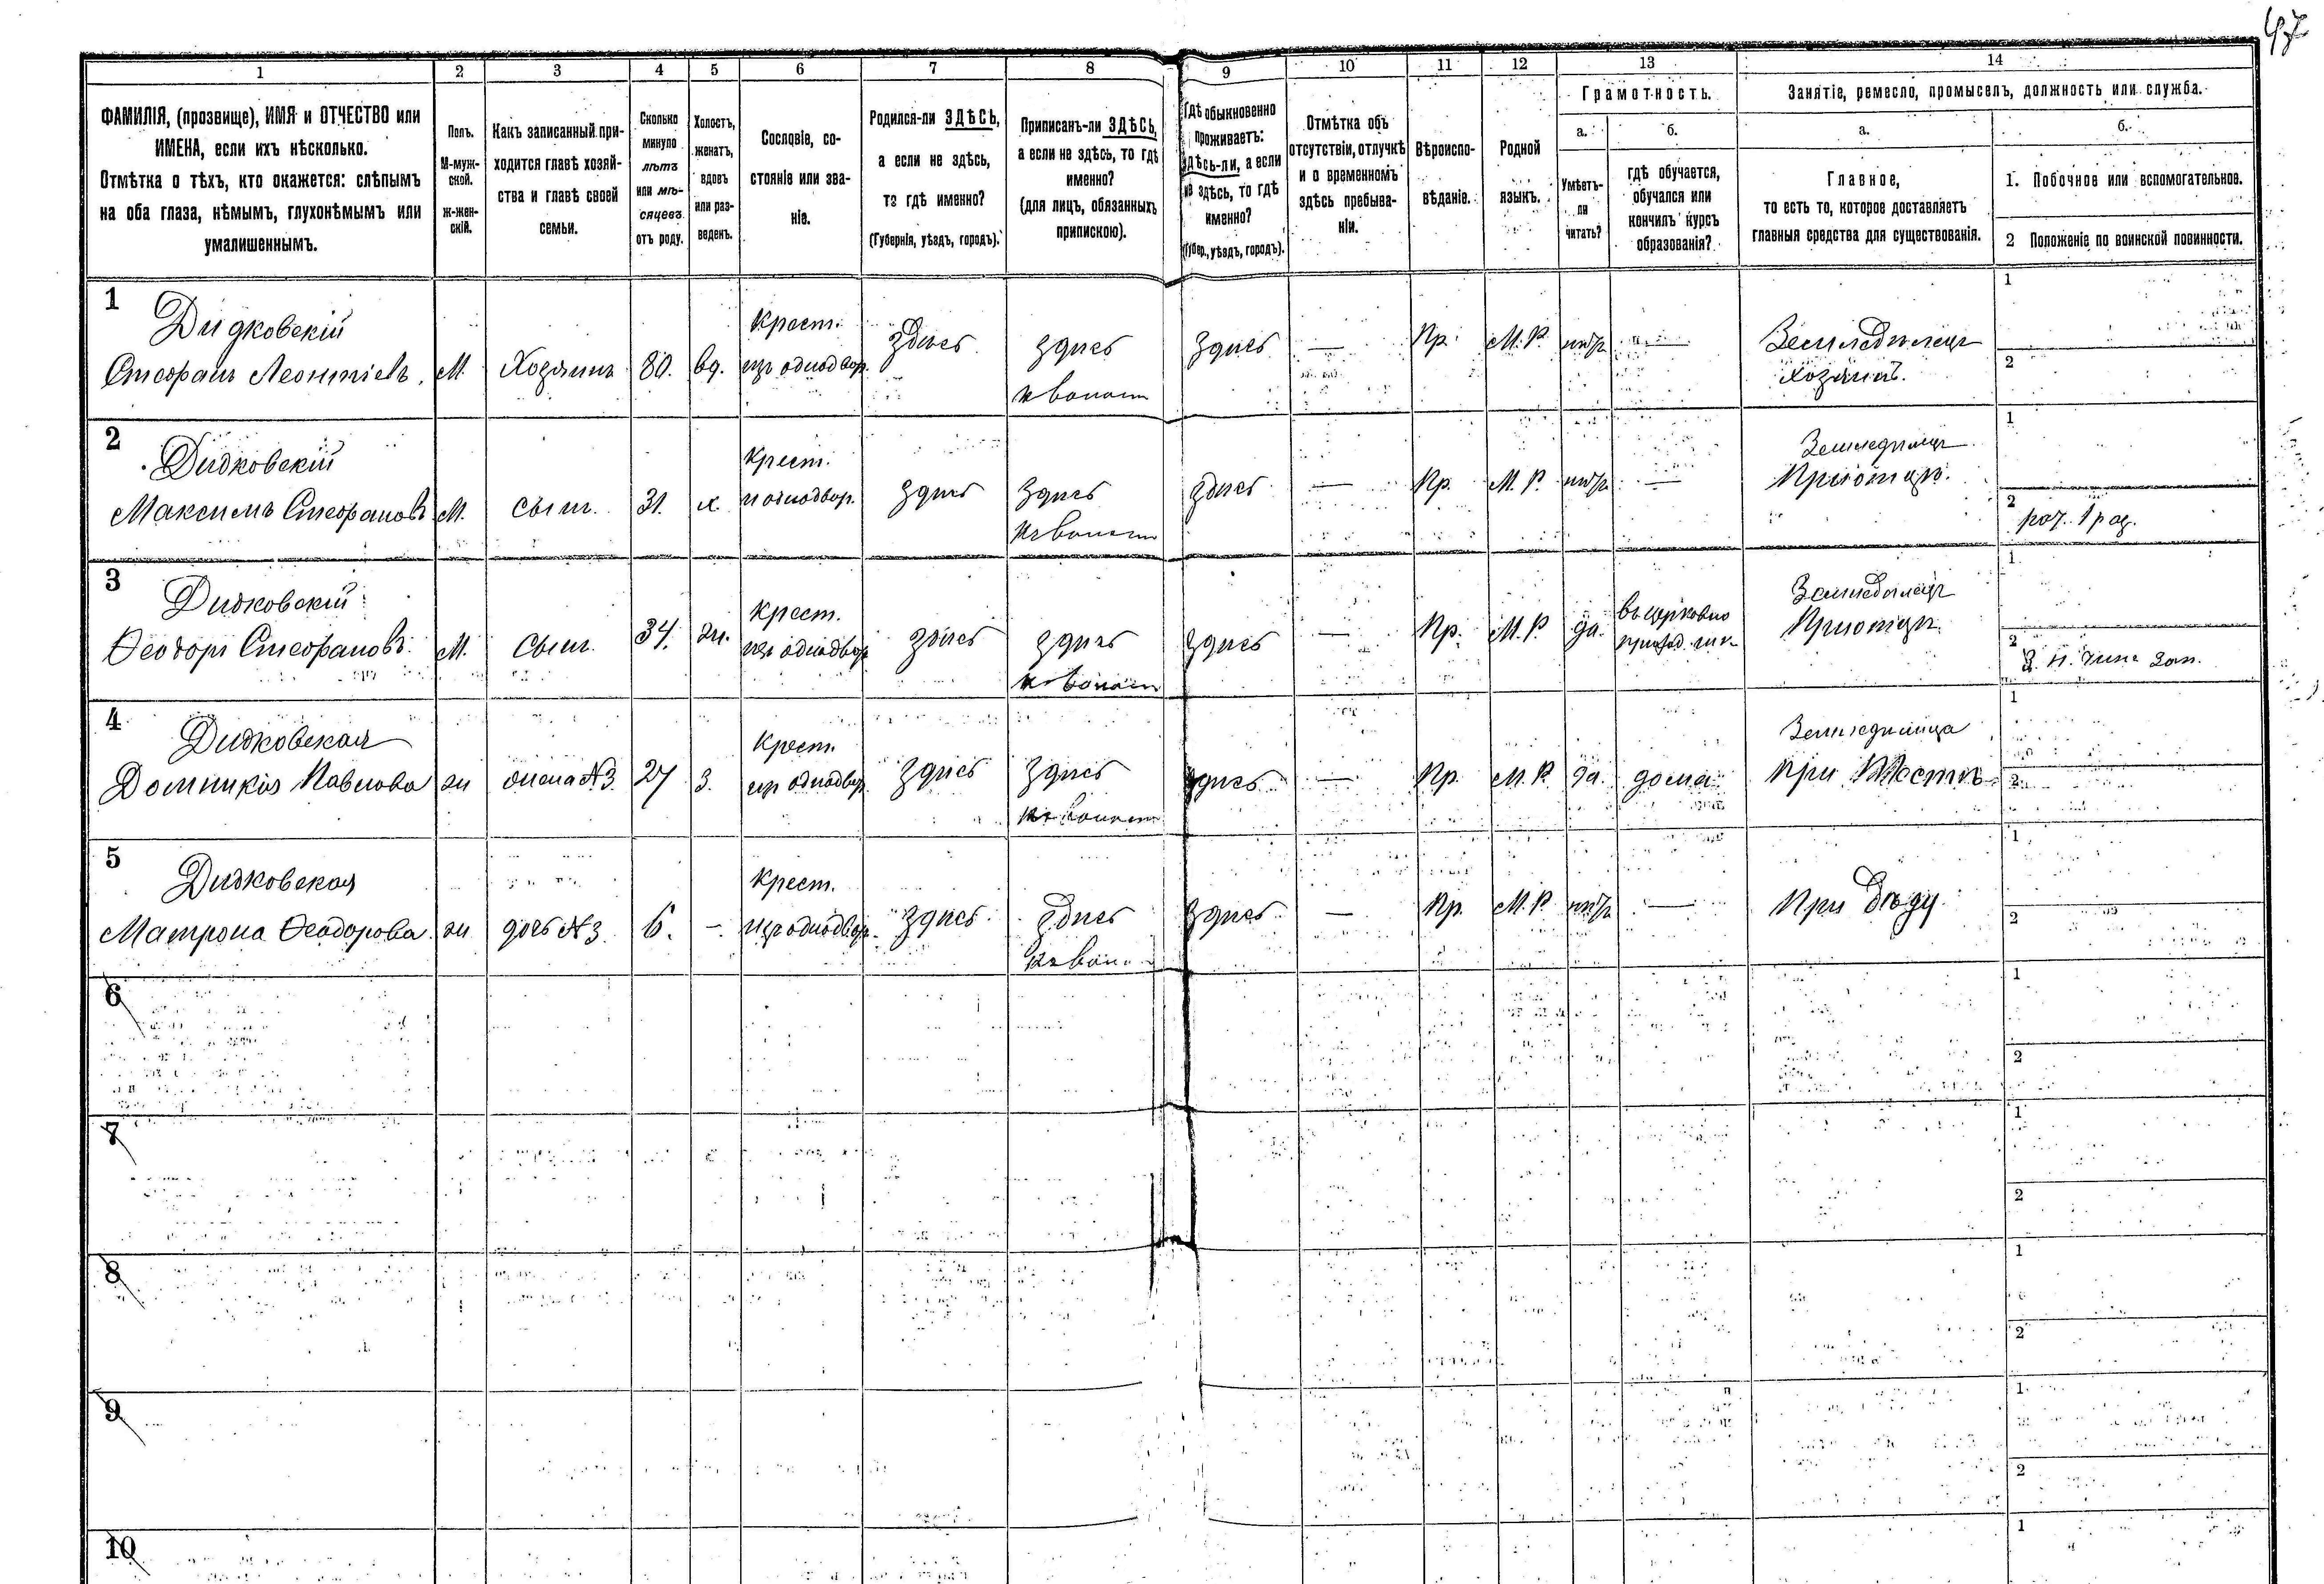 97
1 2 3 4 5 6 7 8 9 10 11 12 13 14
ФАМИЛІЯ, (прозвище), ИМЯ и ОТЧЕСТВО или
ИМЕНА, если ихъ нѣсколько.
Отмѣтка о тѣхъ, кто окажется: слѣпымъ
на оба глаза, нѣмымъ, глухонѣмымъ или
умалишеннымъ.
Полъ.
М-муж-
ской.
Ж-жен-
скій.
Какъ записанный при-
ходится главѣ хозяй-
ства и главѣ своей
семьи.
Сколько
минуло
лѣтъ
или мѣ-
сяцевъ
отъ роду.
Холостъ,
женатъ,
вдовъ
или раз-
веденъ.
Сословіе, со-
стояніе или зва-
ніе.
Родился-ли ЗДѢСЬ,
а если не здѣсь,
то гдѣ именно?
(Губернія, уѣздъ, городъ).
Приписанъ-ли ЗДѢСЬ,
а если не здѣсь, то гдѣ
именно?
(для лицъ, обязанныхъ
припискою).
Гдѣ обыкновенно
проживаетъ:
здѣсь-ли, а если
не здѣсь, то гдѣ
именно?
(Губер., уѣздъ, городъ).
Отмѣтка объ
отсутствіи, отлучкѣ
и о временномъ
здѣсь пребыва-
ніи.
Вѣроиспо-
вѣданіе.
Родной
языкъ.
Грамотность.
а.
Умѣетъ-
ли
читать?
б.
гдѣ обучается,
обучался или
кончилъ курсъ
образованія?
Занятіе, ремесло, промыселъ, должность или служба.
а.
Главное,
то есть то, которое доставляетъ
главныя средства для существованія.
б.
1. Побочное или вспомогательное.
2 Положеніе по воинской повинности.
1
Дидковскій
Стефанъ Леонтіевъ.
М.
Хозяинъ
80.
вд.
Крест.
изъ однодвор.
здѣсь
здѣсь
здѣсь
—
Пр.
М. Р.
нѣтъ
—
Земледѣлецъ
хозяинъ.
1
2
2
Дидковскій
Максимъ Стефановъ
М.
сынъ.
31.
х.
Крест.
изъ однодвор.
здѣсь
здѣсь
здѣсь
—
Пр.
М. Р.
нѣтъ
—
Земледѣлецъ
При отцѣ.
1
2
рат. 1 раз.
3
Дидковскій
Феодоръ Стефановъ.
М.
сынъ.
34.
ж.
Крест.
изъ однодвор
здѣсь
здѣсь
здѣсь
—
Пр.
М. Р.
да.
въ церковно
приход. шк-
Земледѣлецъ
При отцѣ.
1
2
4
Дидковская
Домникія Павлова
ж
жена №3
27
з.
Крест.
изъ однодвор.
здѣсь
здѣсь
здѣсь
—
Пр.
М. Р.
да.
дома
Земледѣлица
при
1
2
5
Дидковская
Матрона Феодорова.
ж
дочь №3.
6.
-.
Крест.
изъ однодвор.
здѣсь.
здѣсь
здѣсь
—
Пр.
М. Р.
нѣтъ
—
При дѣду
1
2
6
1
2
7
1
2
8
1
2
9
1
2
10
1